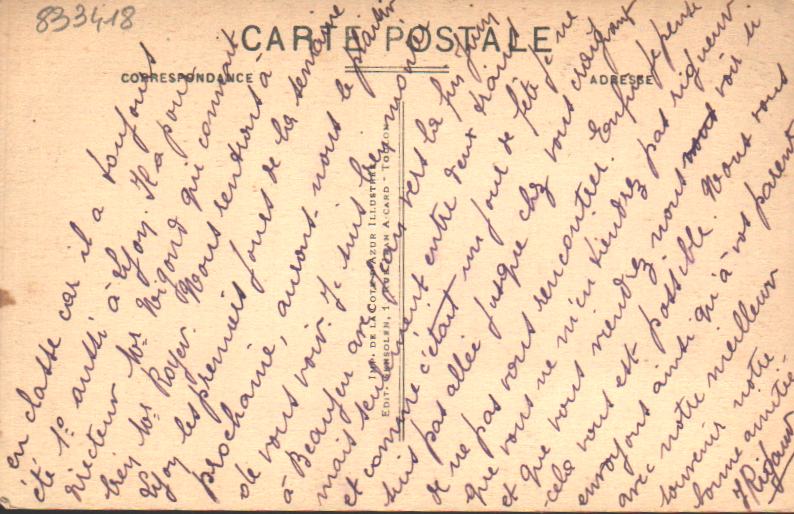 833418
CARTE POSTALE
CORRESPONDANCE
ADRESSE
IMP. DE LA COTE D'AZUR ILLUSTRÉE
EDIT. 1 JEAN AICARD - TOULON
en classe car il a toujours
été 1º aussi à Lyon. Il a pour
directeur Mr Rigond qui connait
bien Mr Royer. Nous rentrons à
Lyon les premiers jours de la semaine
prochaine, aurons-nous le plaisir
de vous voir. Je suis bien
à Beaujeu vers la fin juin
mais seulement entre deux trains
et comme c'était un jour de fête je ne
suis pas allée jusque chez vous craignant
de ne pas vous rencontrer. Enfin je pense
que vous ne m'en tiendrez pas rigueur
et que vous viendrez nous voir si
cela vous est possible. Nous vous
envoyons ainsi qu'à vos parents
avec notre meilleur
souvenir notre
bonne amitié
J Rigaud